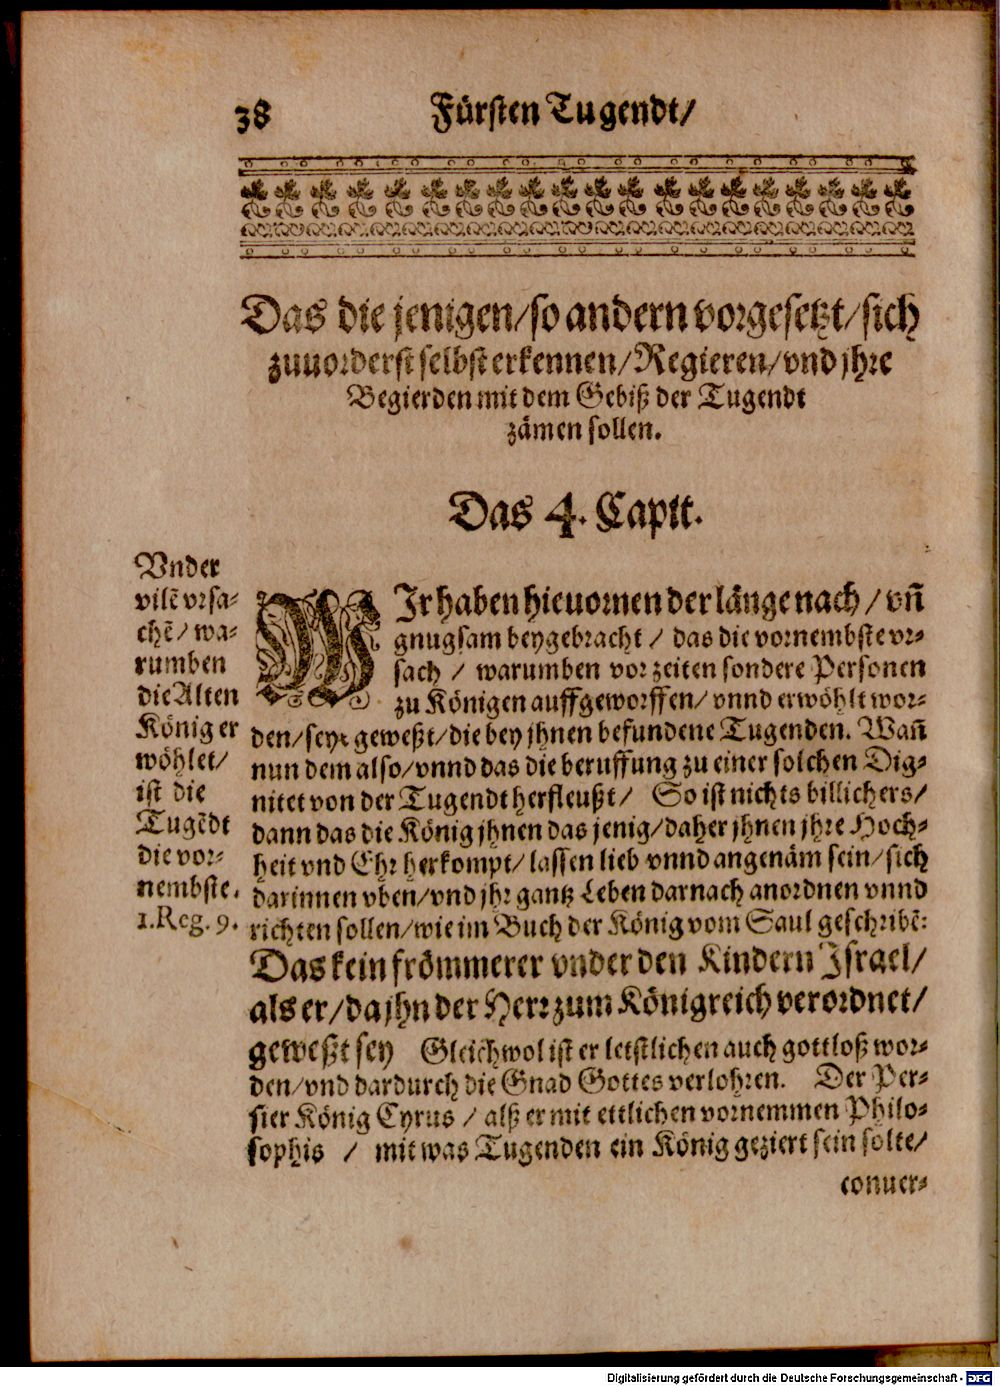 38
Fürsten Tugendt/
Das die jenigen/so andern vorgesetzt/sich
zuuorderst selbst erkennen/Regieren/vnd jhre
Begierden mit dem Gebiß der Tugendt
zämen sollen.
Das 4. Capit.
Vnder
vilē vrsa-
chē/wa-
rumben
die Alten
König er
wöhlet/
ist die
Tugēdt
die vor-
nembste.
1.Reg. 9.
WIr haben hieuornen der länge nach/vñ
gnugsam beygebracht/ das die vornembste vr-
sach / warumben vor zeiten sondere Personen
zu Königen auffgeworffen/vnnd erwöhlt wor-
den/seyt geweßt/die bey jhnen befundene Tugenden. Wañ
nun dem also/vnnd das die beruffung zu einer solchen Dig-
nitet von der Tugendt herfleußt/ So ist nichts billichers/
dann das die König jhnen das jenig/daher jhnen jhre Hoch-
heit vnd Ehr herkompt/lassen lieb vnnd angenäm sein/sich
darinnen vben/vnd jhr gantz Leben darnach anordnen vnnd
richten sollen/wie im Buch der König vom Saul geschribē:
Das kein frömmerer vnder den Kindern Israel/
als er/da jhn der Herr zum Königreich verordnet/
geweßt sey Gleichwol ist er letstlichen auch gottloß wor-
den/vnd dardurch die Gnad Gottes verlohren. Der Per-
sier König Cyrus / alß er mit ettlichen vornemmen Philo-
sophis / mit was Tugenden ein König geziert sein solte/
conuer-
Digitalisierung gefördert durch die Deutsche Forschungsgemeinschaft - DFG